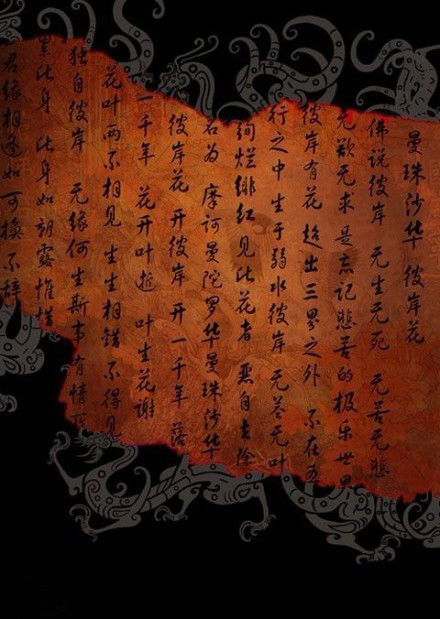 曼珠沙华 彼岸花
佛说彼岸 无生无死 无苦无悲
无欲无求 是忘记悲苦的极乐世界
彼岸有花 超出三界之外 不在五
行之中 生于弱水彼岸 无茎无叶
绚烂绯红 见此花者 恶自去除
名为 摩诃曼陀罗华曼珠沙华
彼岸花 开彼岸 开一千年 落
一千年 花开叶 叶生花谢
花叶两不相见 生生相错 不得见
独自彼岸 无缘何生斯 有情
累此身 此身如朝露 惟惜
君缘相逢如可换不辞